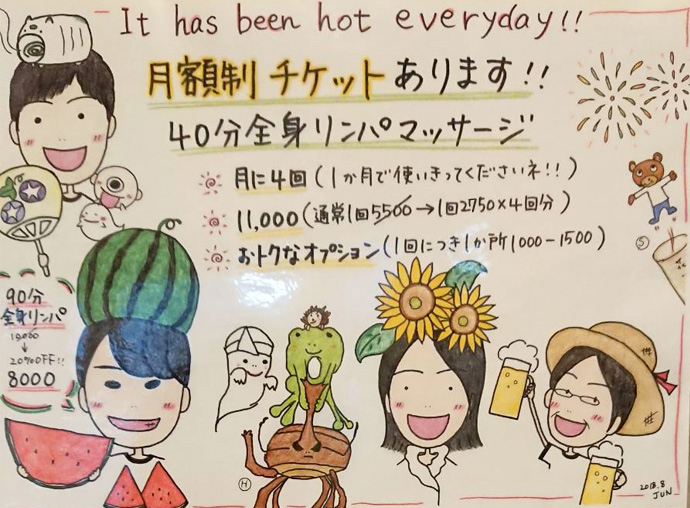 It has been hot everyday!!
月額制 チケットあります!!
40分全身リンパマッサージ
月に4回(1か月で使いきってくださいネ!!)
11,000(通常1回5500→1回2750×4回分)
おトクなオプション(1回につき1か所1000-1500)
90分
全身リンパ
↓
20%OFF!!
8000
S
H
2018.8
JUN